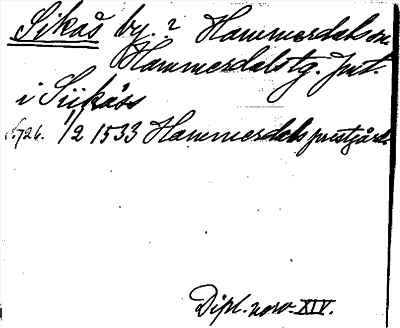 Sikås by.? Hammerdals sn
Hammerdalstg. Jmt.
i Siikåss
N:726. 1/2 1533 Hammerdals prestgård.
Dipl. norv. XIV.